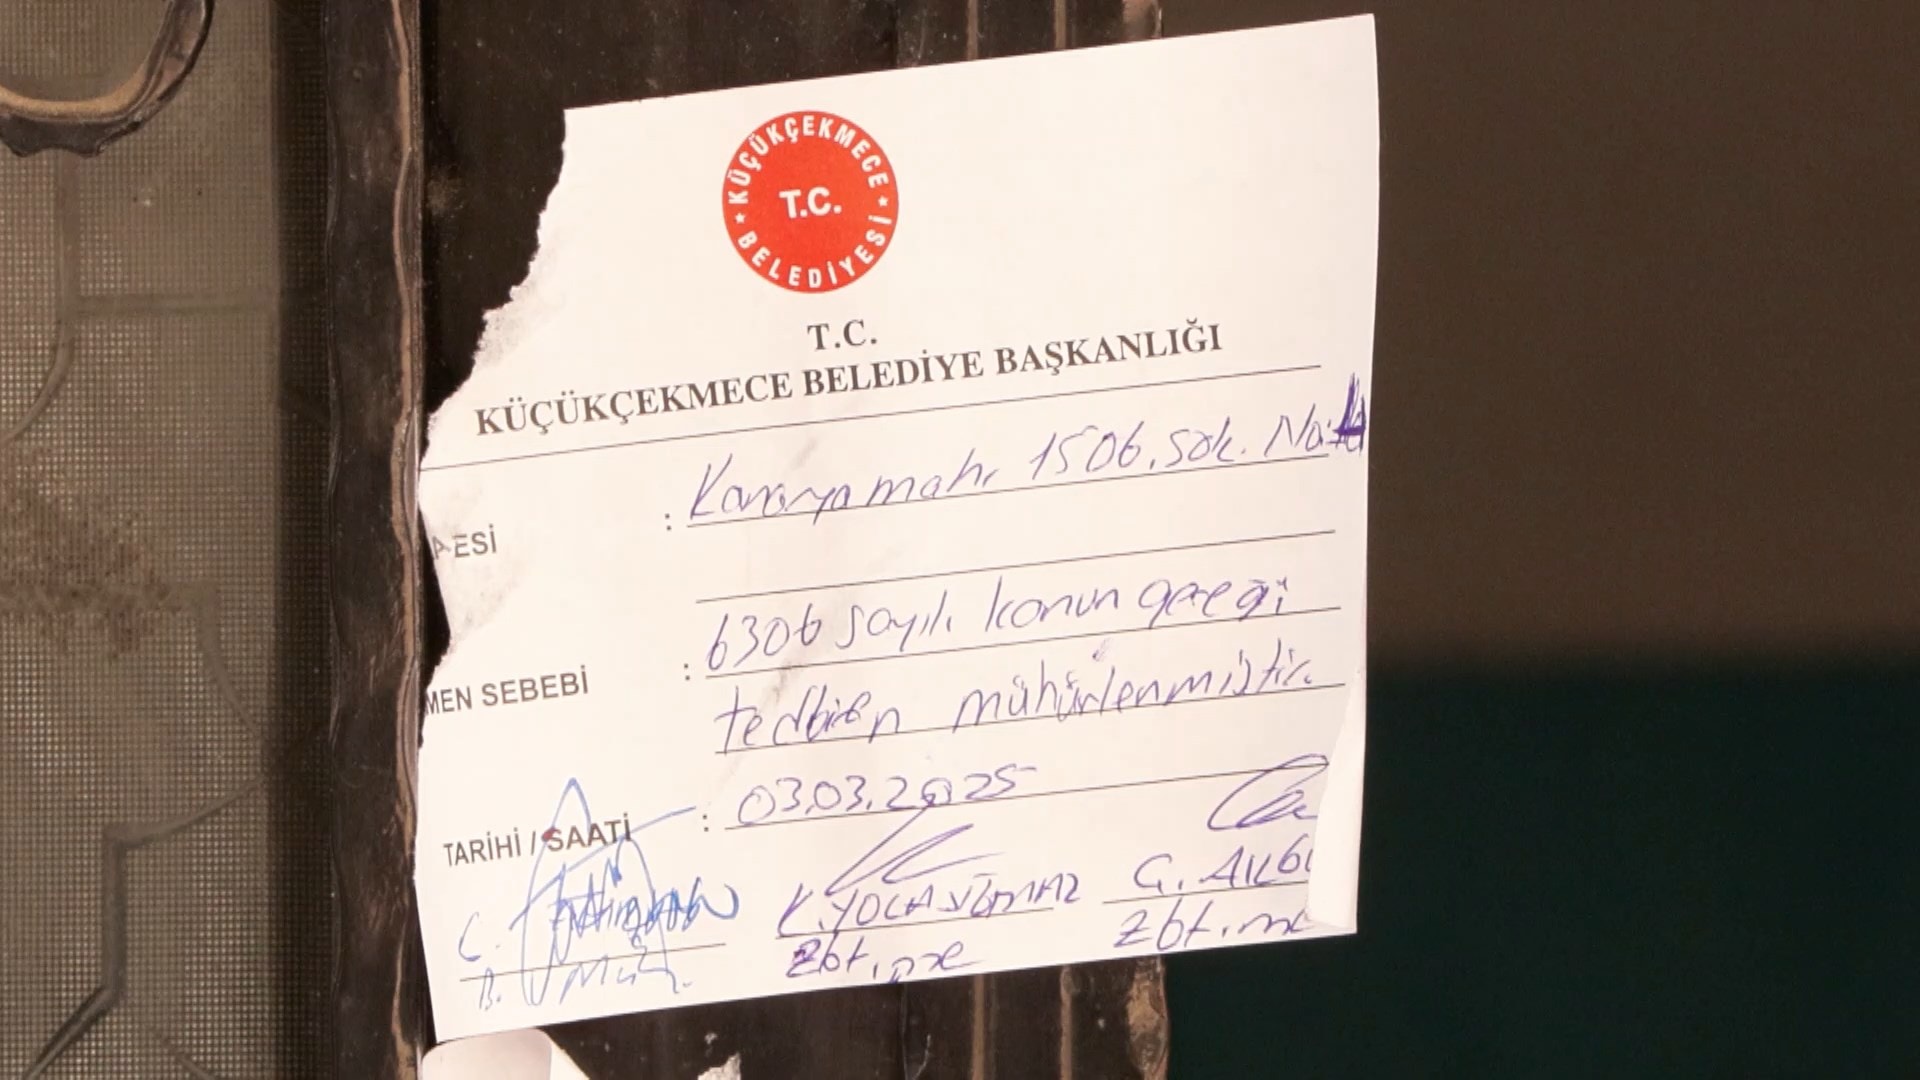 KÜÇÜKÇEKMECE BELEDİYESİ
T.C.
T.C.
KÜÇÜKÇEKMECE BELEDİYE BAŞKANLIĞI
ESİ : Kanarya mah. 1506. sok. No:
MEN SEBEBİ : 6306 sayılı kanun gereği
tedbiren mühürlenmiştir.
TARİHİ / SAATİ : 03.03.2025
K. YOCA
Zbt. Ç.
Zbt.